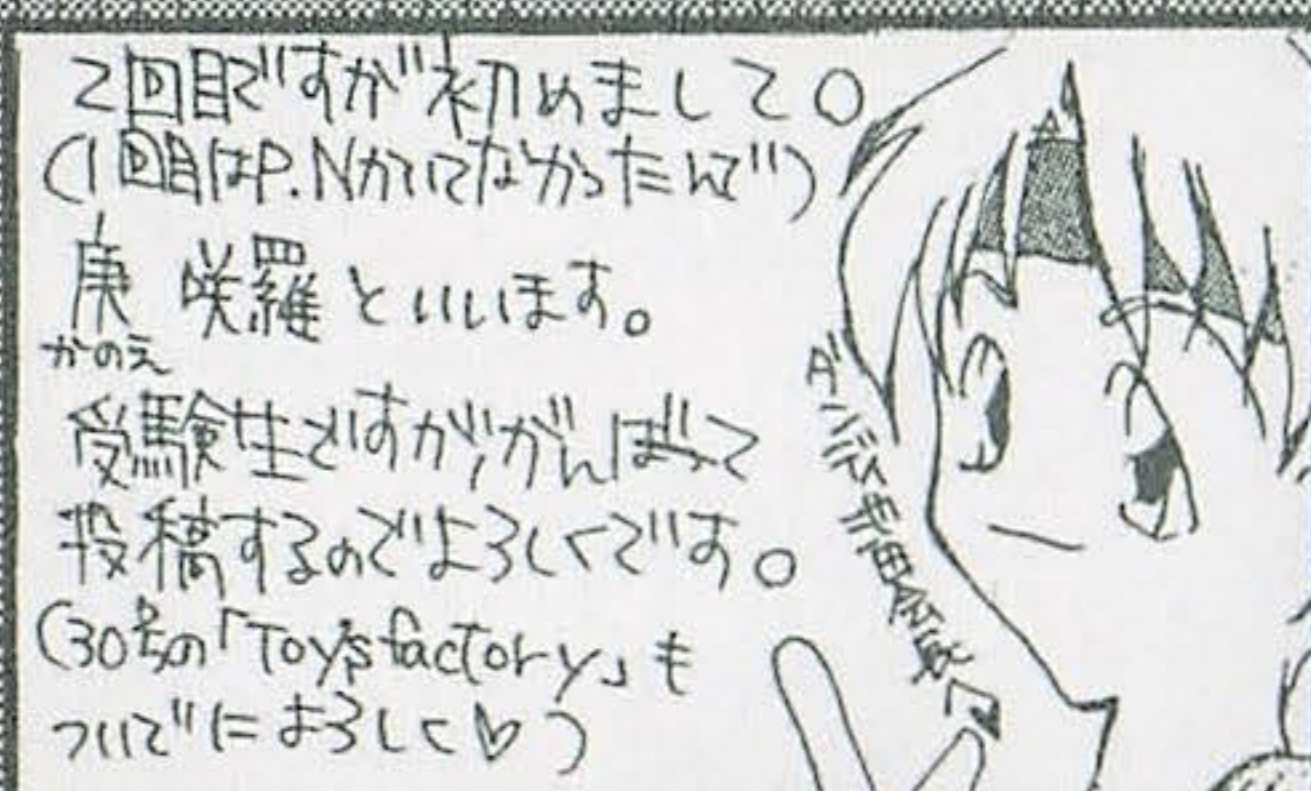 2回目ですが初めまして。
(1回目はP.Nかいてなかったんで)
庚 咲羅といいます。
かのえ
受験生ですが、がんばって
投稿するのでよろしくです。
(30号の「Toy's factory」も
ついでによろしく♡)